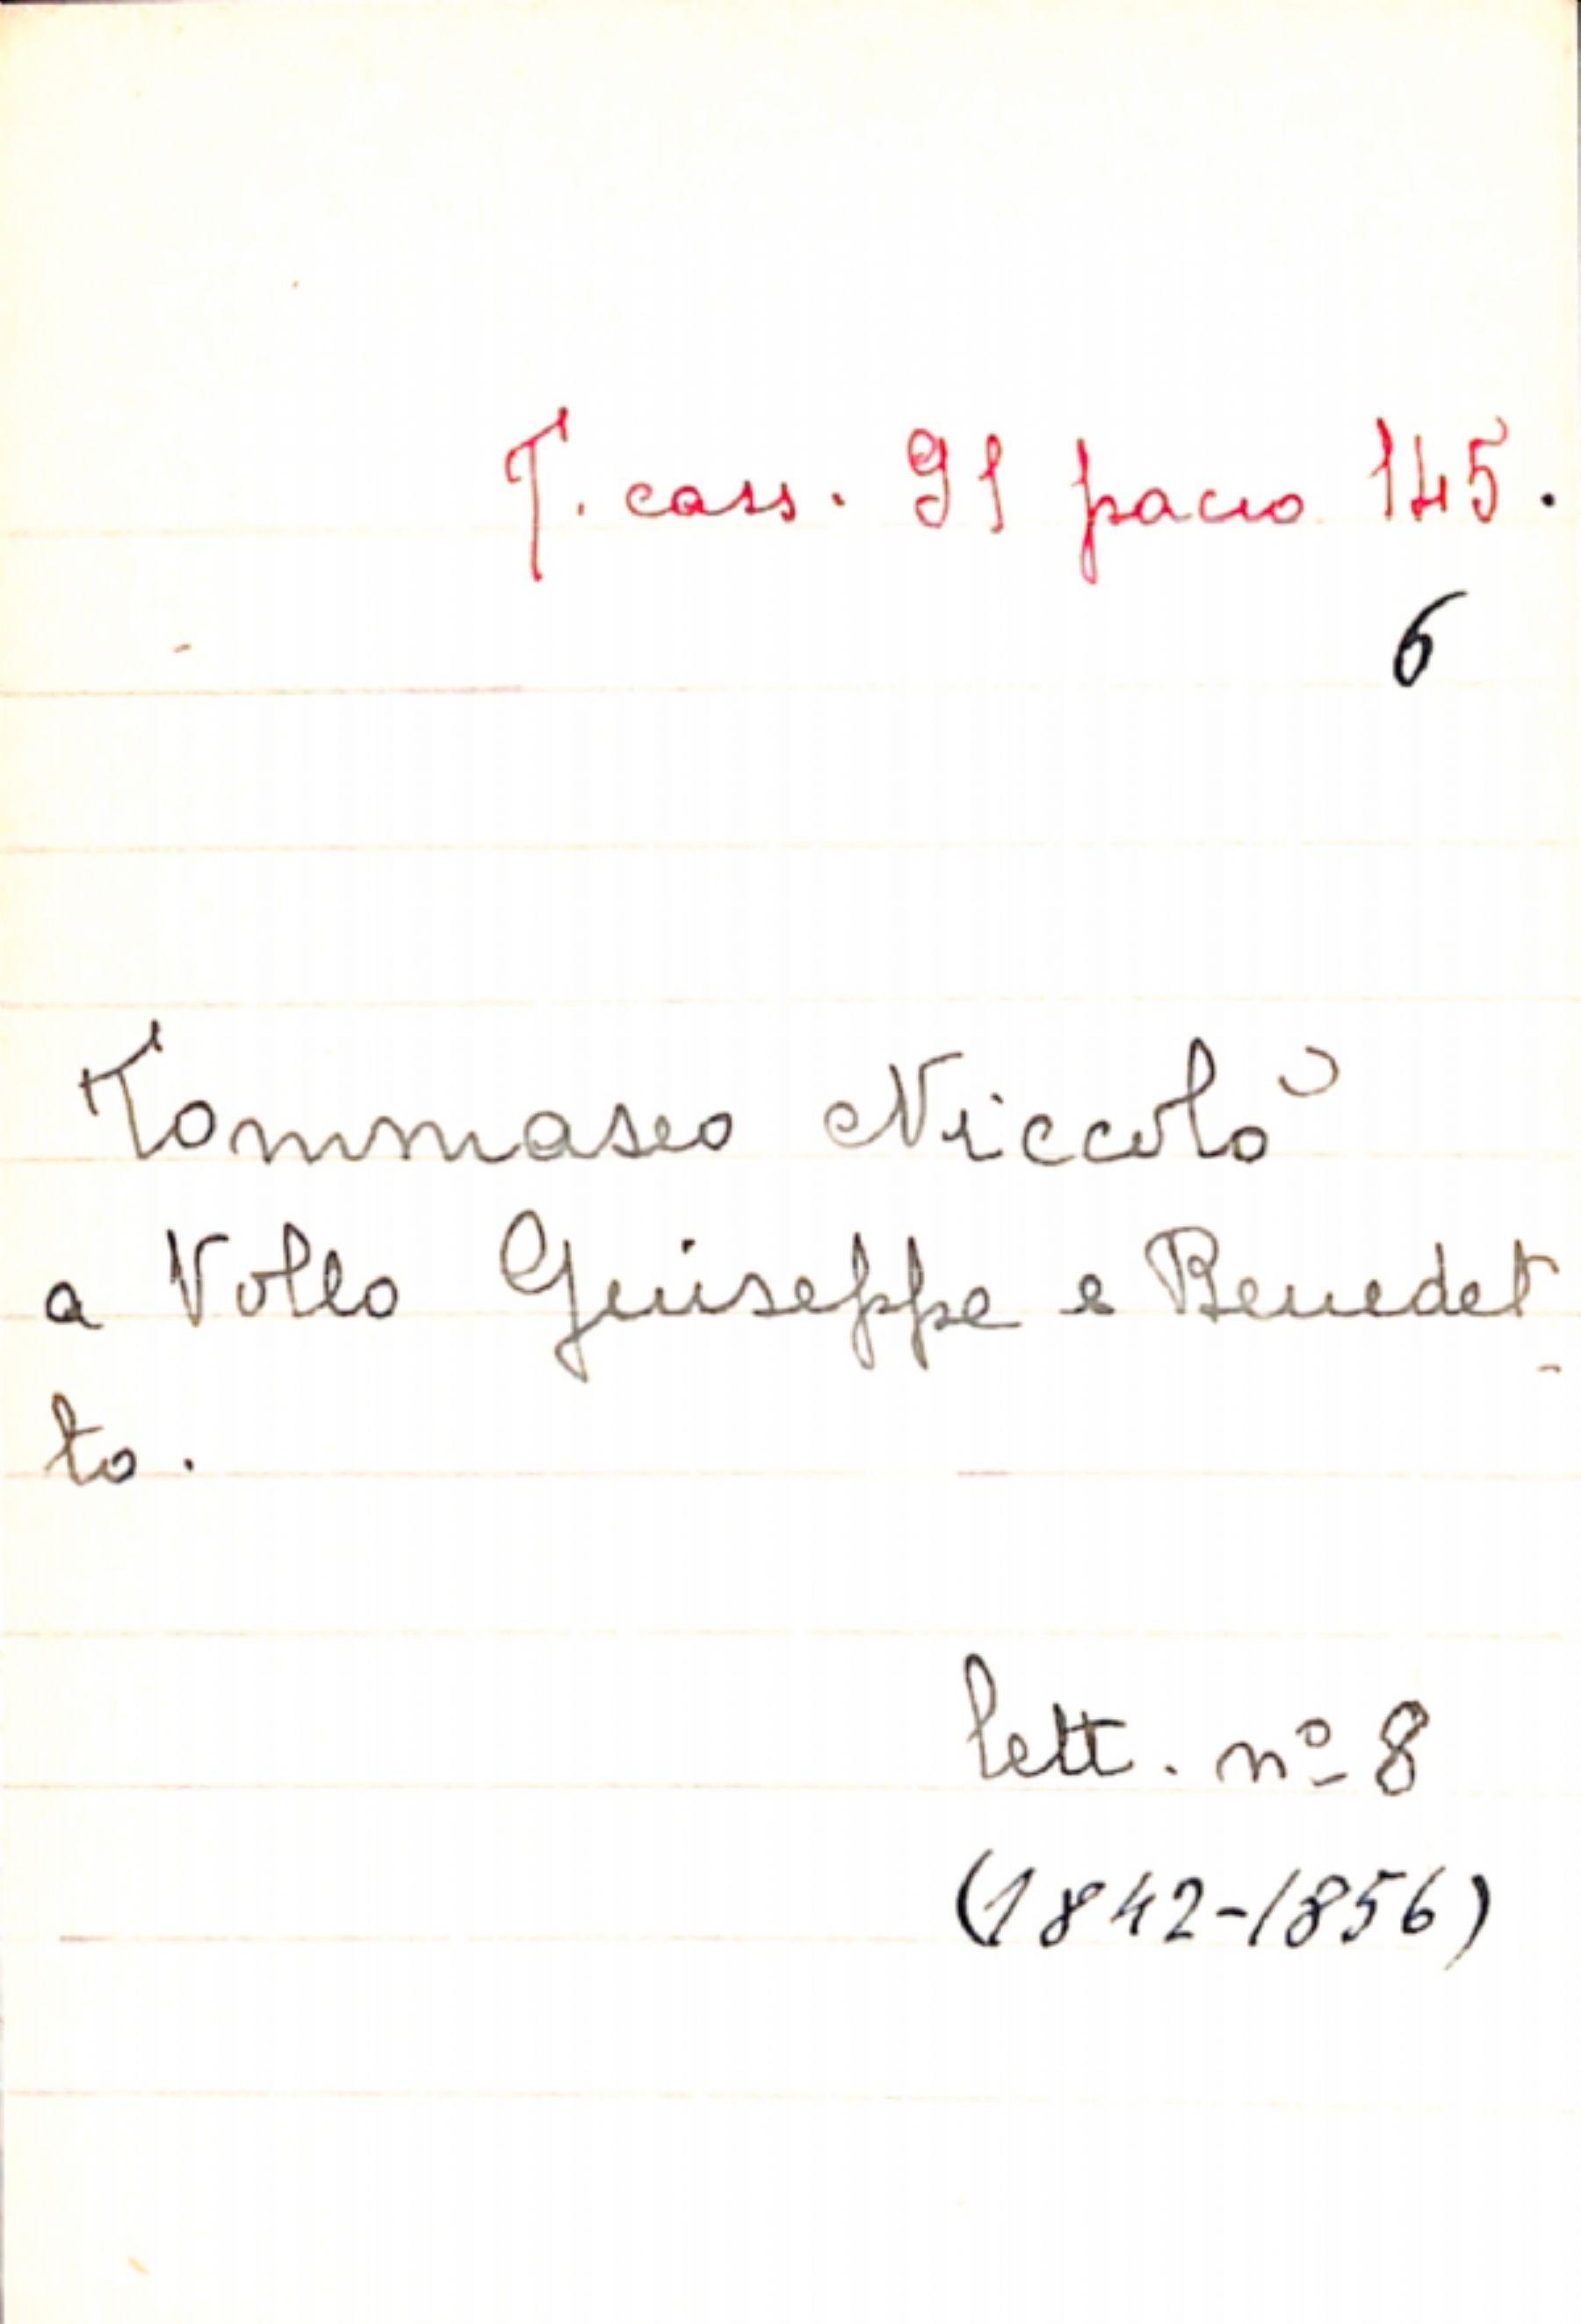 T. cass. 91 pacco 145.
6
Tommaseo Niccolò
a Vollo Giuseppe e Benedet-
to.
lett. nº 8
(1842-1856)